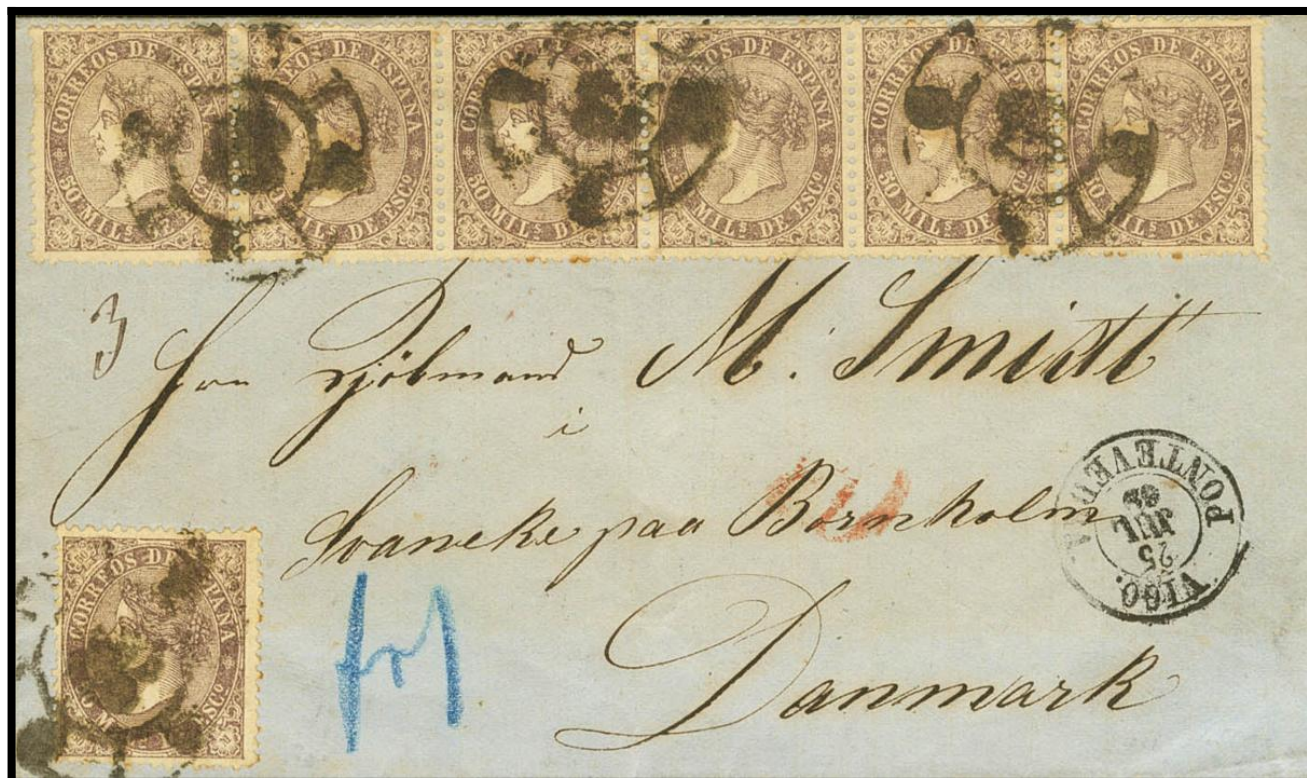 CORREOS DE ESPAÑA 50 MIL.S DE ESCO
CORREOS DE ESPAÑA MIL.S DE ESCO
CORREOS DE ESPAÑA 50 MIL.S DE ESCO
CORREOS DE ESPAÑA MIL.S DE ESCO
CORREOS DE ESPAÑA 50 MIL.S DE ESCO
CORREOS DE ESPAÑA 50 MIL.S DE ESCO
3
Kjöbmand M. Smidt
i
Svaneke paa Bornholm
Danmark
VIGO.
25
JUL
68
PONTEVEDRA
CORREOS DE ESPAÑA ESCO